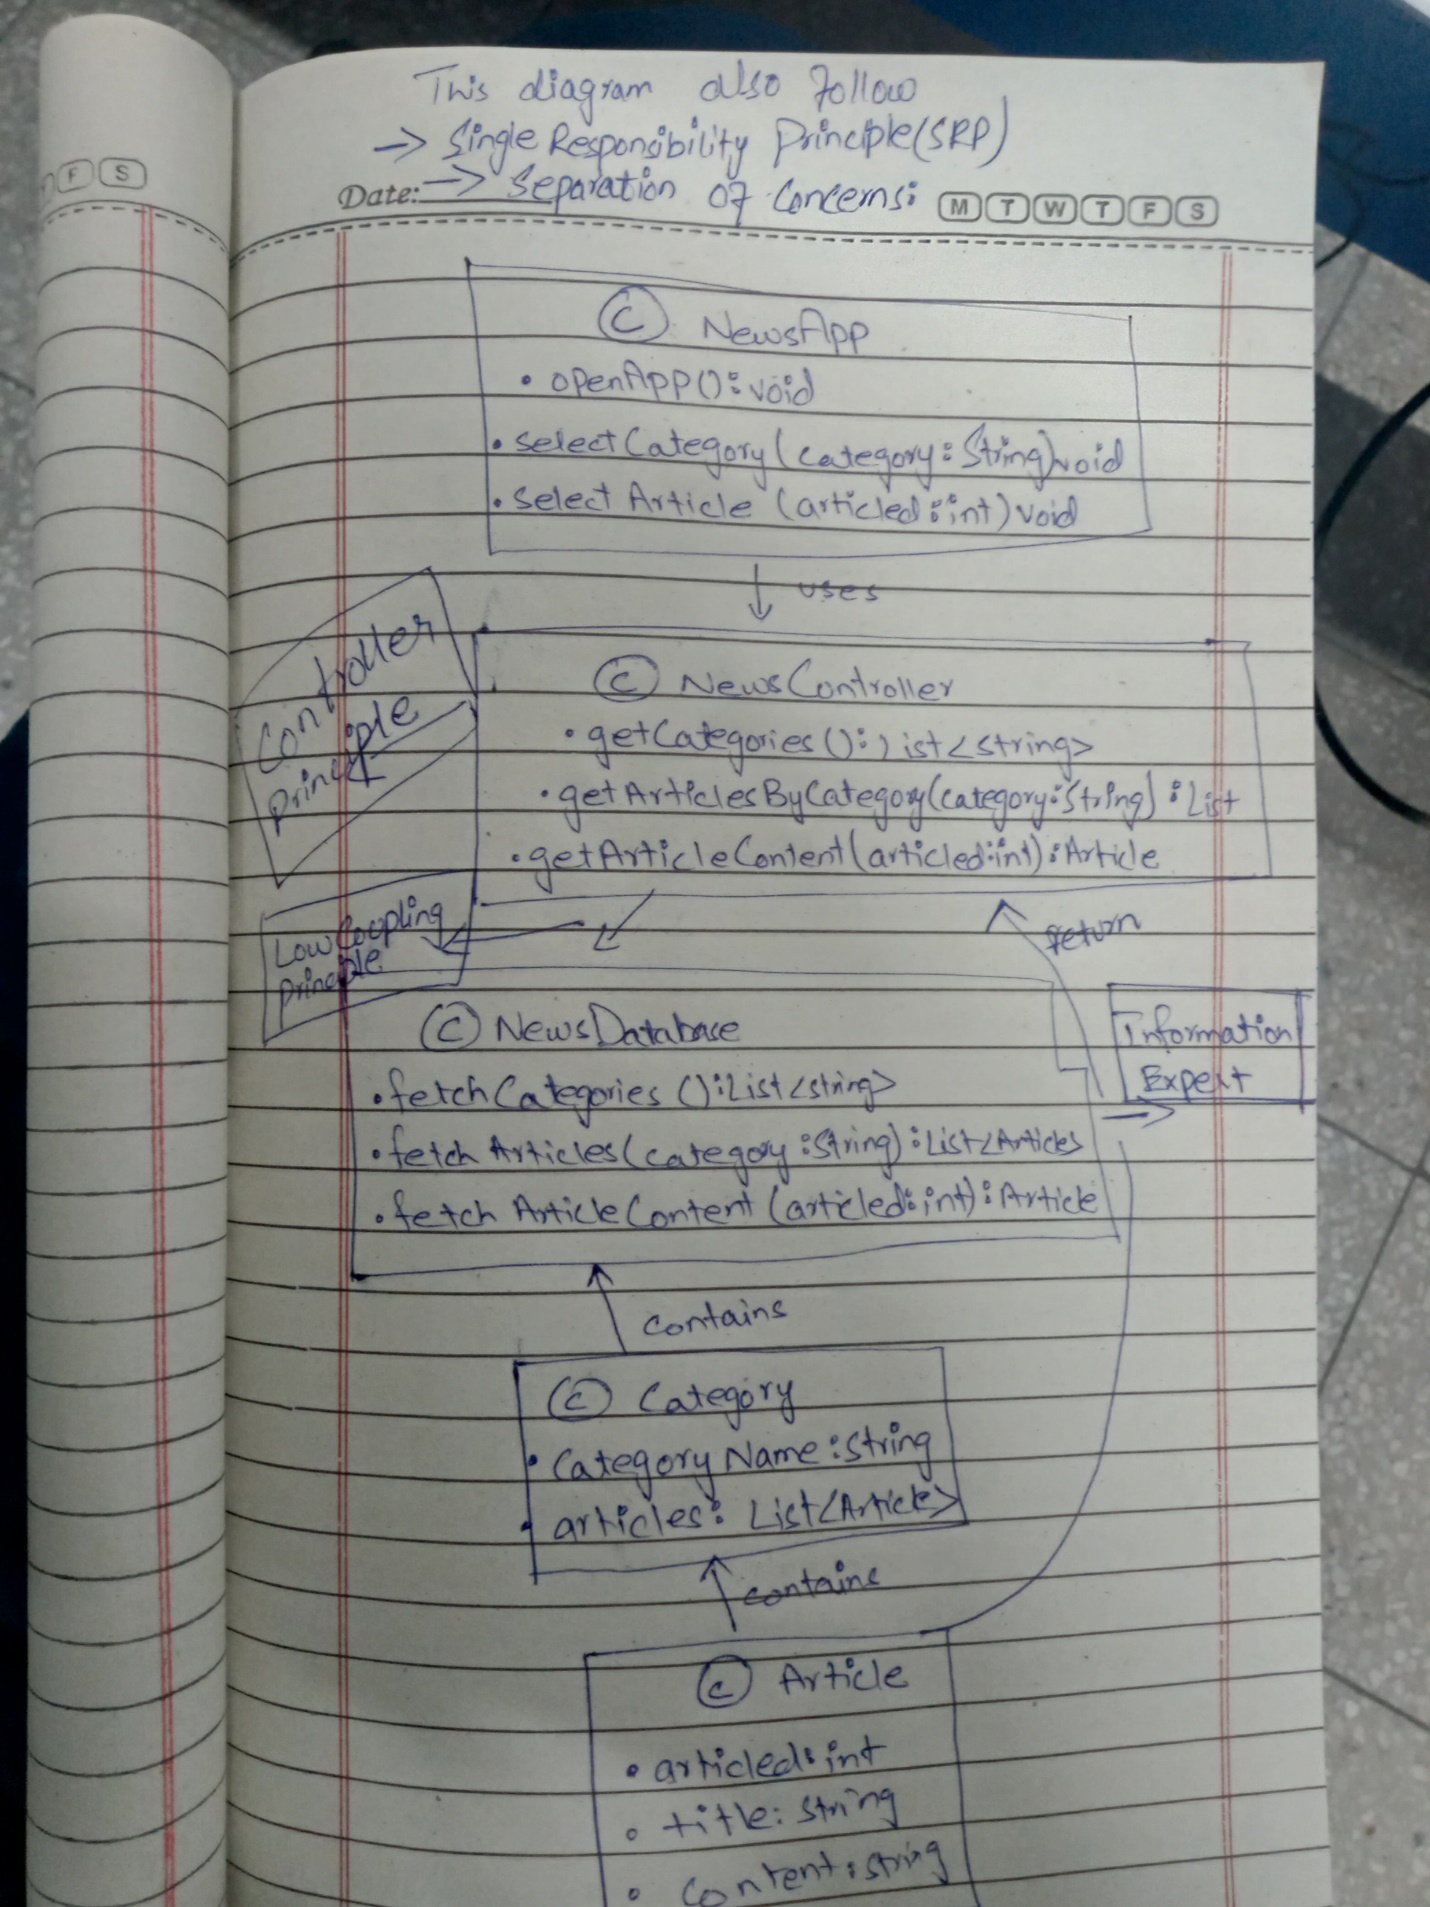 This diagram also follow
-> Single Responsibility Principle(SRP)
Date: -> Separation of Concerns:
M T W T F S
F S
C NewsApp
• openApp():void
• select Category(category:String)void
• select Article (articled:int)void
uses
Controller
Principle
C NewsController
• getCategories():list<string>
• getArticlesByCategory(category:String):List
• getArticleContent(articled:int):Article
Low Coupling
Principle
return
Information
Expert
C NewsDatabase
• fetchCategories():List<string>
• fetch Articles(category:String):List<Articles
• fetch ArticleContent(articled:int):Article
contains
C Category
• Category Name:string
• articles: List<Article>
contains
C Article
• articled:int
• title:string
• content:string